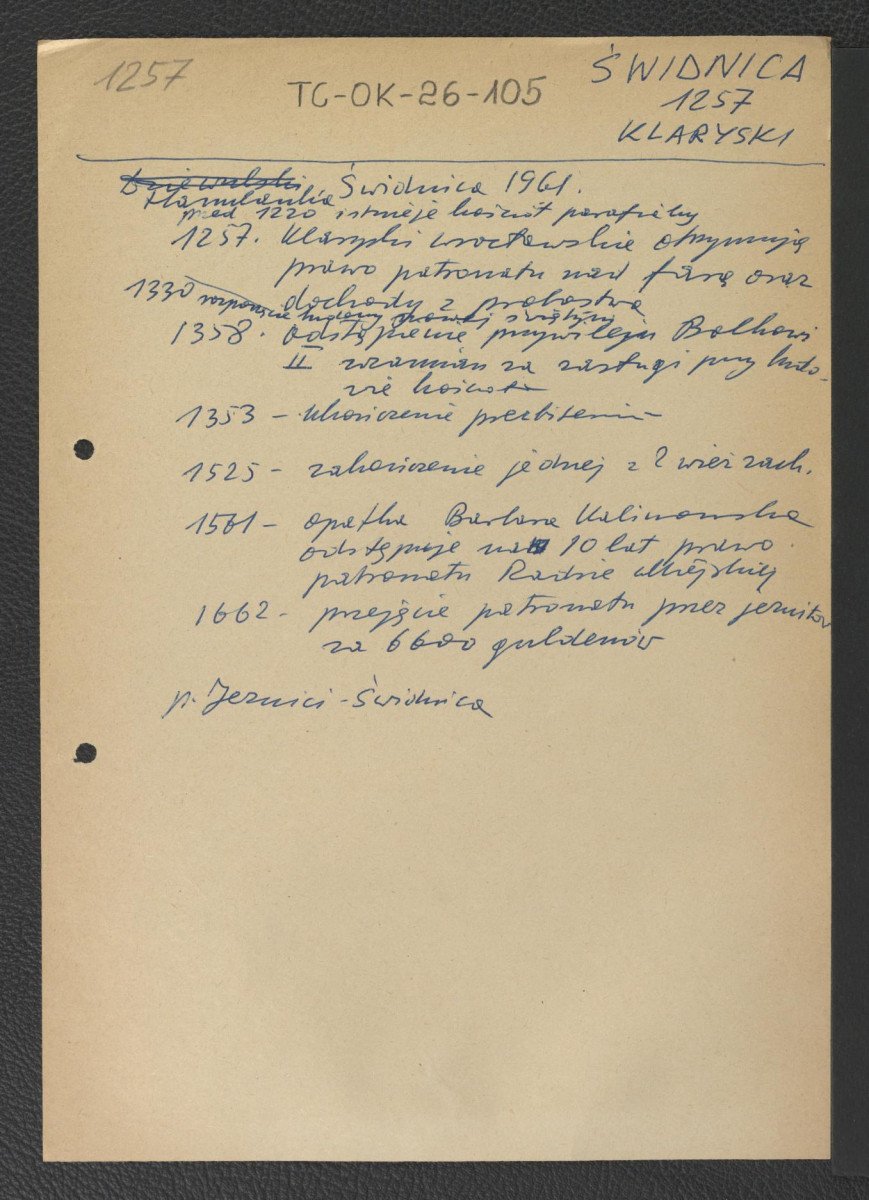 1257
TC-OK-26-105
ŚWIDNICA
1257
KLARYSKI
Świdnica 1961.
przed 1220 istnieje kościół parafialny
1257. Klaryski wrocławskie otrzymują
prawo patronatu nad farą oraz
dochody z probostwa
1330 rozpoczęcie budowy nowej świątyni
1358. odstąpienie przywileju Bolkowi
II wzamian za zasługi przy budo-
wie kościoła
1353 - ukończenie prezbiterium
1525 - zakończenie jednej z 2 wież zach.
1561 - opatka Barbara Kalinowska
odstępuje na 10 lat prawo
patronatu Radzie Miejskiej
1662 - przejęcie patronatu przez jezuitów
za 6600 guldenów
p. Jezuici - Świdnica